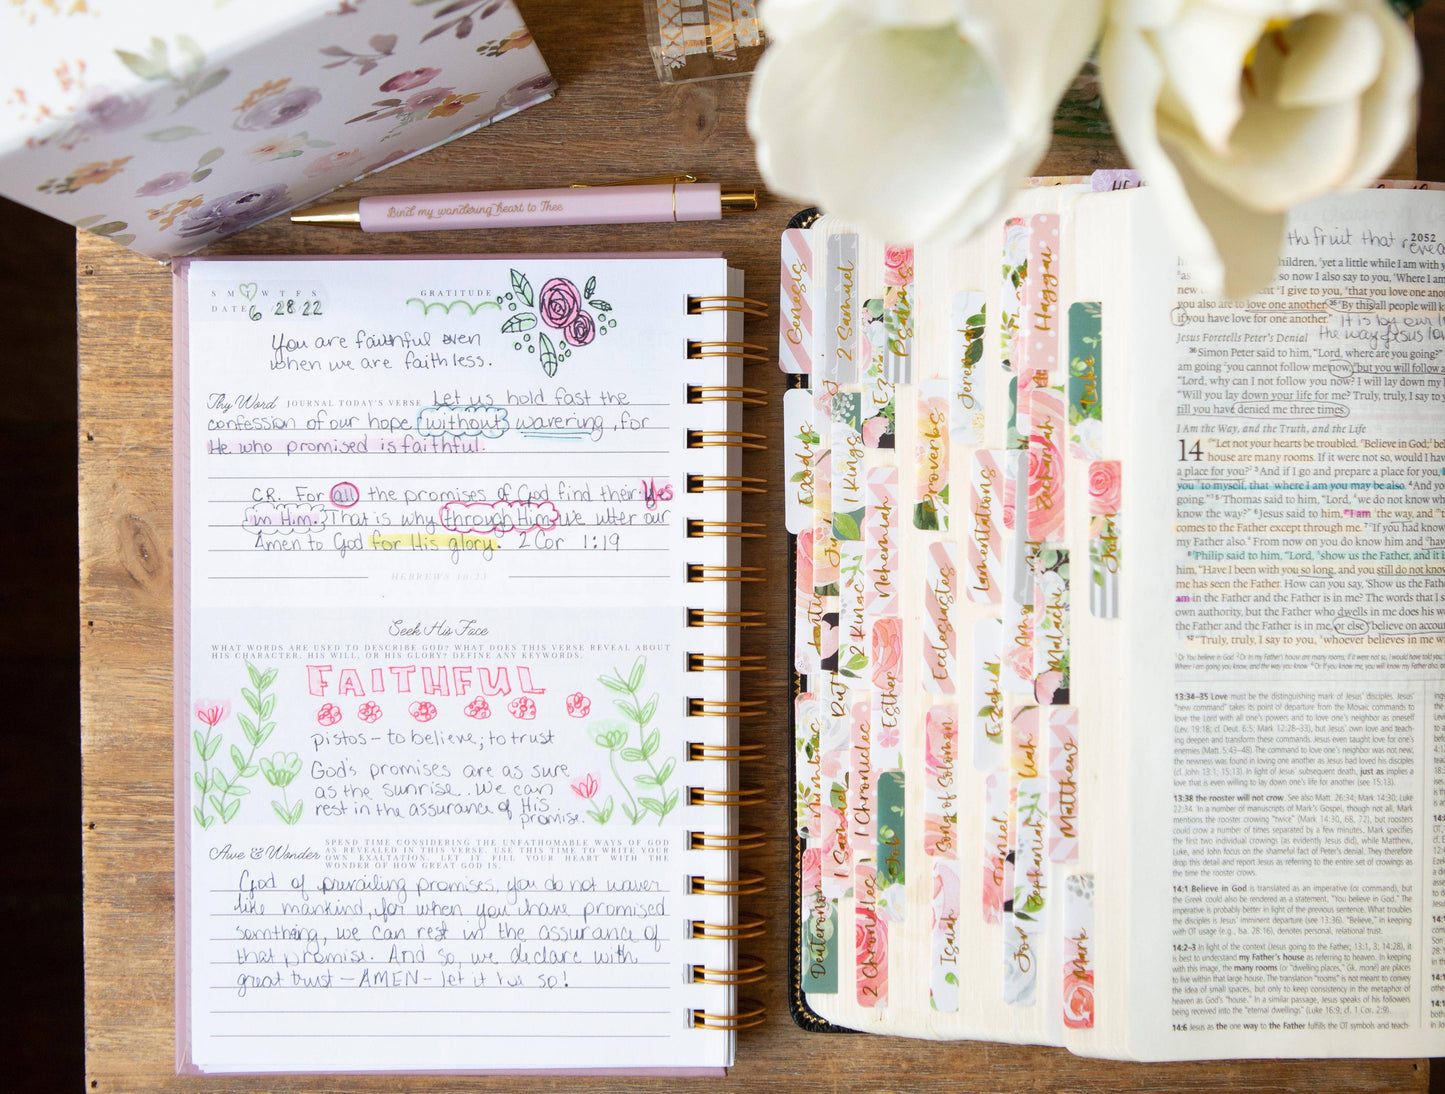 Bind my wandering heart to Thee
S M T W T F S
DATE 6 28 22
GRATITUDE
You are faithful even
when we are faithless.
Thy Word JOURNAL TODAY'S VERSE Let us hold fast the
confession of our hope without wavering, for
He who promised is faithful.
CR. For all the promises of God find their Yes
in Him. That is why through Him we utter our
Amen to God for His glory. 2 Cor 1:19
HEBREWS 10:23
Seek His Face
WHAT WORDS ARE USED TO DESCRIBE GOD? WHAT DOES THIS VERSE REVEAL ABOUT
HIS CHARACTER, HIS WILL, OR HIS GLORY? DEFINE ANY KEYWORDS.
FAITHFUL
pistos - to believe; to trust
God's promises are as sure
as the sunrise. We can
rest in the assurance of His
promise.
Awe & Wonder
SPEND TIME CONSIDERING THE UNFATHOMABLE WAYS OF GOD
AS REVEALED IN THIS VERSE. USE THIS TIME TO WRITE YOUR
OWN EXALTATION. LET IT FILL YOUR HEART WITH THE
WONDER OF HOW GREAT GOD IS.
God of prevailing promises, you do not waver
like mankind, for when you have promised
something, we can rest in the assurance of
that promise. And so, we declare with
great trust - AMEN - let it be so!
Genesis
2 Samuel
Psalms
Jeremiah
Haggai
Luke
Exodus
1 Kings
Proverbs
Lamentations
Zechariah
John
2 Kings
Nehemiah
Ecclesiastes
Malachi
Numbers
1 Chronicles
Esther
Ezekiel
Matthew
1 Samuel
Job
Song of Solomon
Daniel
Zephaniah
Deuteronomy
2 Chronicles
Isaiah
Joel
Mark
the fruit that
2052
children, yet a little while I am with
so now I also say to you, 'Where I am
I give to you, that you love one
you also are to love one another. 35 By this all people will
if you have love for one another."
it is by our
the way Jesus
Jesus Foretells Peter's Denial
36 Simon Peter said to him, "Lord, where are you going?"
am going you cannot follow me now, but you will follow
"Lord, why can I not follow you now? I will lay down my
"Will you lay down your life for me? Truly, truly, I say to
till you have denied me three times.
I Am the Way, and the Truth, and the Life
14 "Let not your hearts be troubled. Believe in God;
house are many rooms. If it were not so, would I
a place for you? 3 And if I go and prepare a place for you,
you to myself, that where I am you may be also. 4 And
going." 5 Thomas said to him, "Lord, we do not know
know the way?" 6 Jesus said to him, "I am the way, and
comes to the Father except through me. 7 If you had
my Father also. From now on you do know him and
8 Philip said to him, "Lord, show us the Father, and it
him, "Have I been with you so long, and you still do not know
me has seen the Father. How can you say, 'Show us the
am in the Father and the Father is in me? The words that I
own authority, but the Father who dwells in me does his
the Father and the Father is in me, or else believe on
12 "Truly, truly, I say to you, whoever believes in me
13:34–35 Love must be the distinguishing mark of Jesus' disciples. Jesus'
"new command" takes its point of departure from the Mosaic commands to
love the Lord with all one's powers and to love one's neighbor as oneself
(Lev. 19:18; cf. Deut. 6:5; Mark 12:28–33), but Jesus' own love and teach-
ing deepen and transform these commands. Jesus even taught love for one's
enemies (Matt. 5:43–48). The command to love one's neighbor was not new;
the newness was found in loving one another as Jesus had loved his disciples
(cf. John 13:1; 15:13). In light of Jesus' subsequent death, just as implies a
love that is even willing to lay down one's life for another (see 15:13).
13:38 the rooster will not crow. See also Matt. 26:34; Mark 14:30; Luke
22:34. In a number of manuscripts of Mark's Gospel, though not all, Mark
mentions the rooster crowing "twice" (Mark 14:30, 68, 72), but roosters
could crow a number of times separated by a few minutes. Mark specifies
the first two individual crowings (as evidently Jesus did), while Matthew,
Luke, and John focus on the shameful fact of Peter's denial. They therefore
drop this detail and report Jesus as referring to the entire set of crowings as
the time the rooster crows.
14:1 Believe in God is translated as an imperative (or command), but
the Greek could also be rendered as a statement, "You believe in God." The
imperative is probably better in light of the previous sentence. What troubles
the disciples is Jesus' imminent departure (see 13:36). "Believe," in keeping
with OT usage (e.g., Isa. 28:16), denotes personal, relational trust.
14:2–3 In light of the context (Jesus going to the Father; 13:1, 3; 14:28), it
is best to understand my Father's house as referring to heaven. In keeping
with this image, the many rooms (or "dwelling places," Gk. monē) are places
to live within that large house. The translation "rooms" is not meant to convey
the idea of small spaces, but only to keep consistency in the metaphor of
heaven as God's "house." In a similar passage, Jesus speaks of his followers
being received into the "eternal dwellings" (Luke 16:9; cf. 1 Cor. 2:9).
14:6 Jesus as the one way to the Father fulfills the OT symbols and teach-